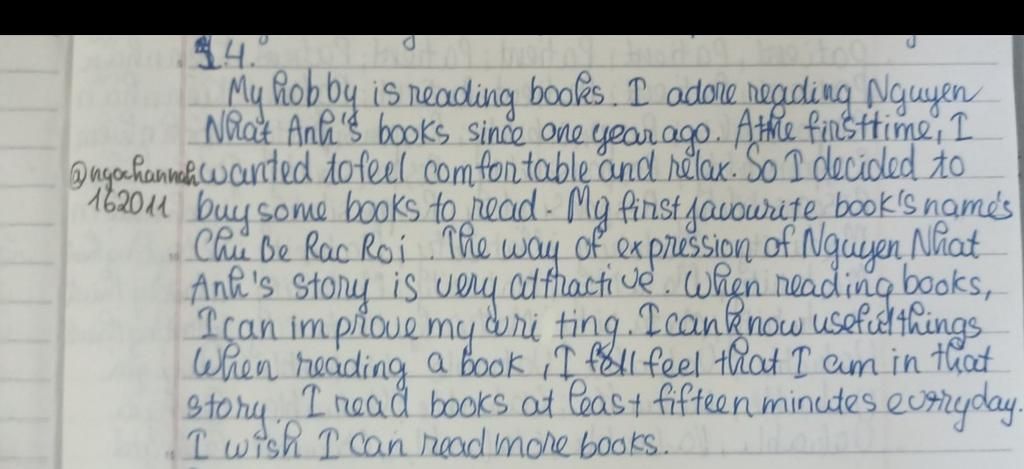 14.
My hobby is reading books. I adore reading Nguyen
Nhat Anh's books since one year ago. Athe firsttime, I
@ngochannah wanted to feel comfortable and relax. So I decided to
162011 buy some books to read. My first favourite book's name's
Chu Be Rac Roi. The way of expression of Nguyen Nhat
Anh's story is very attractive. When reading books,
I can improve my writing. I can know useful things
When reading a book, I feel that I am in that
story. I read books at least fifteen minutes everyday.
I wish I can read more books.